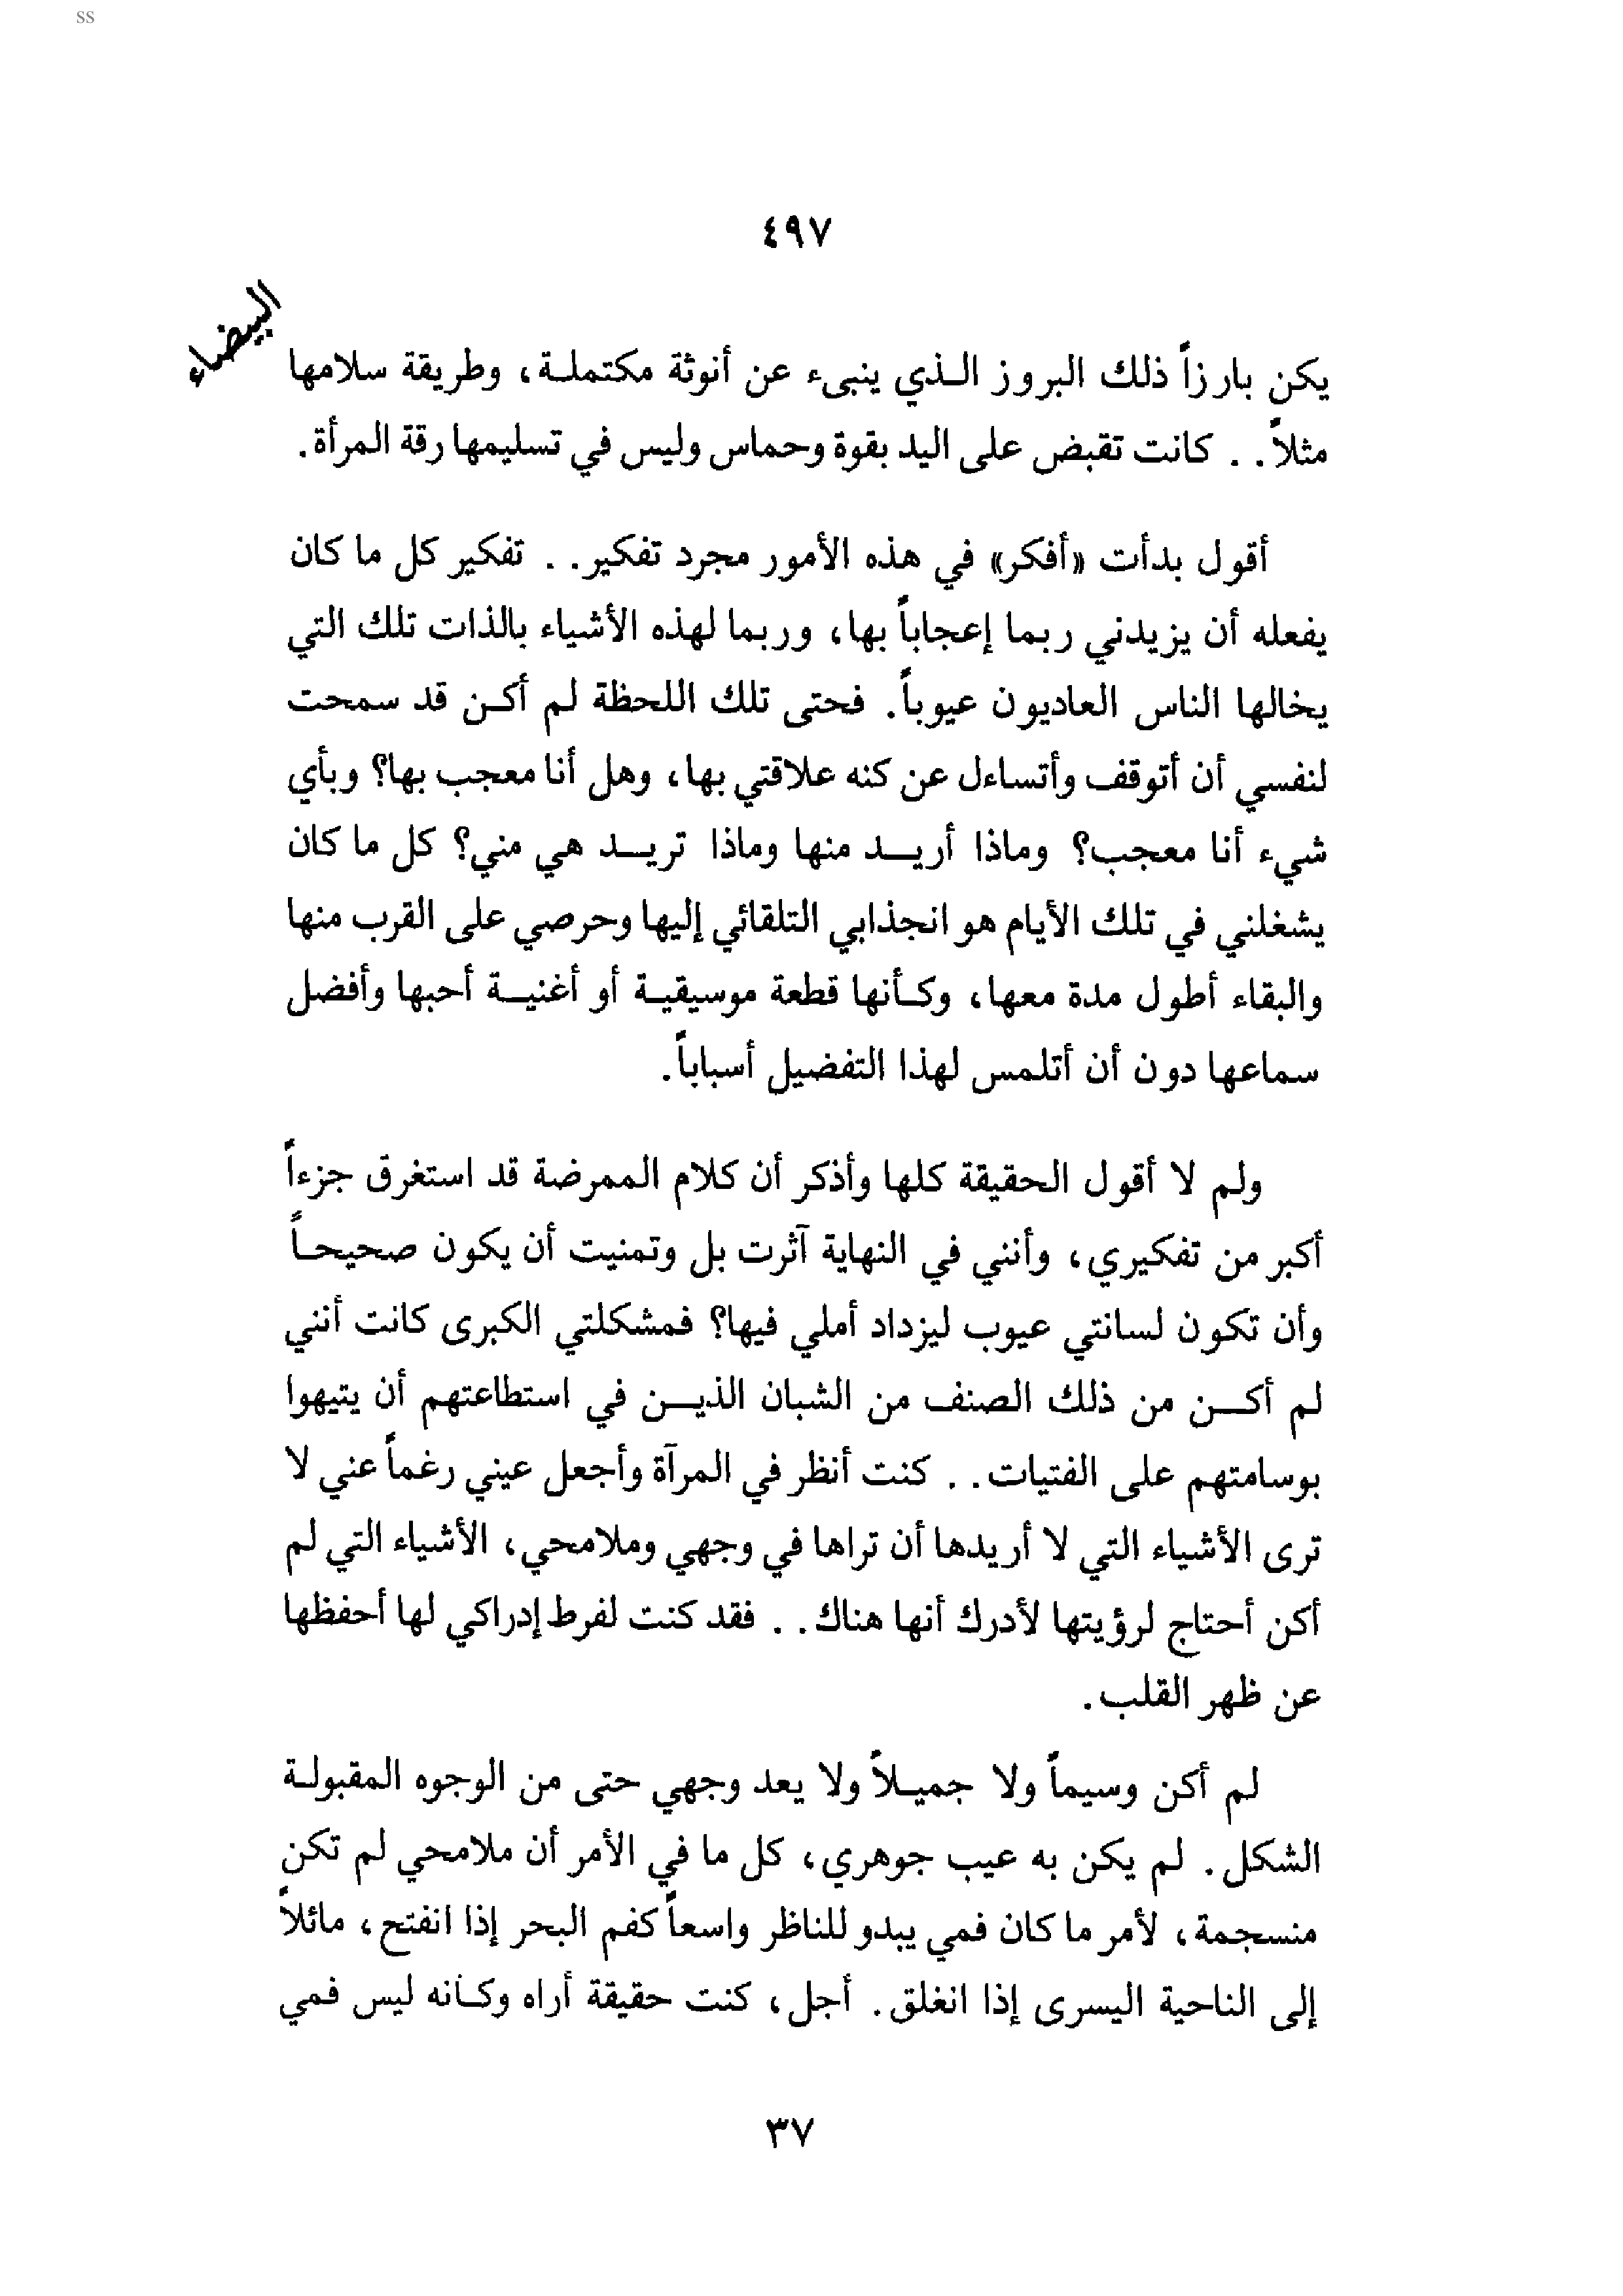 ss
٤٩٧
البيضاء
يكن بارزاً ذلك البروز الـذي ينبىء عن أنوثة مكتملـة، وطريقة سلامها
مثلاً. . كانت تقبض على اليد بقوة وحماس وليس في تسليمها رقة المرأة.
أقول بدأت «أفكر» في هذه الأمور مجرد تفكير. . تفكير كل ما كان
يفعله أن يزيدني ربما إعجاباً بها، وربما لهذه الأشياء بالذات تلك التي
يخالها الناس العاديون عيوباً. فحتى تلك اللحظة لم أكـن قد سمحت
لنفسي أن أتوقف وأتساءل عن كنه علاقتي بها، وهل أنا معجب بها؟ وبأي
شيء أنا معجب؟ وماذا أريـد منها وماذا تريـد هي مني؟ كل ما كان
يشغلني في تلك الأيام هو انجذابي التلقائي إليها وحرصي على القرب منها
والبقاء أطول مدة معها، وكـأنها قطعة موسيقيـة أو أغنيـة أحبها وأفضل
سماعها دون أن أتلمس لهذا التفضيل أسباباً.
ولم لا أقول الحقيقة كلها وأذكر أن كلام الممرضة قد استغرق جزءاً
أكبر من تفكيري، وأنني في النهاية آثرت بل وتمنيت أن يكون صحيحـاً
وأن تكون لسانتي عيوب ليزداد أملي فيها؟ فمشكلتي الكبرى كانت أنني
لم أكـن من ذلك الصنف من الشبان الذيـن في استطاعتهم أن يتيهوا
بوسامتهم على الفتيات. . كنت أنظر في المرآة وأجعل عيني رغماً عني لا
ترى الأشياء التي لا أريدها أن تراها في وجهي وملامحي، الأشياء التي لم
أكن أحتاج لرؤيتها لأدرك أنها هناك. . فقد كنت لفرط إدراكي لها أحفظها
عن ظهر القلب.
لم أكن وسيماً ولا جميـلاً ولا يعد وجهي حتى من الوجوه المقبولـة
الشكل. لم يكن به عيب جوهري، كل ما في الأمر أن ملامحي لم تكن
منسجمة، لأمر ما كان فمي يبدو للناظر واسعاً كفم البحر إذا انفتح، مائلاً
إلى الناحية اليسرى إذا انغلق. أجل، كنت حقيقة أراه وكـأنه ليس فمي
٣٧